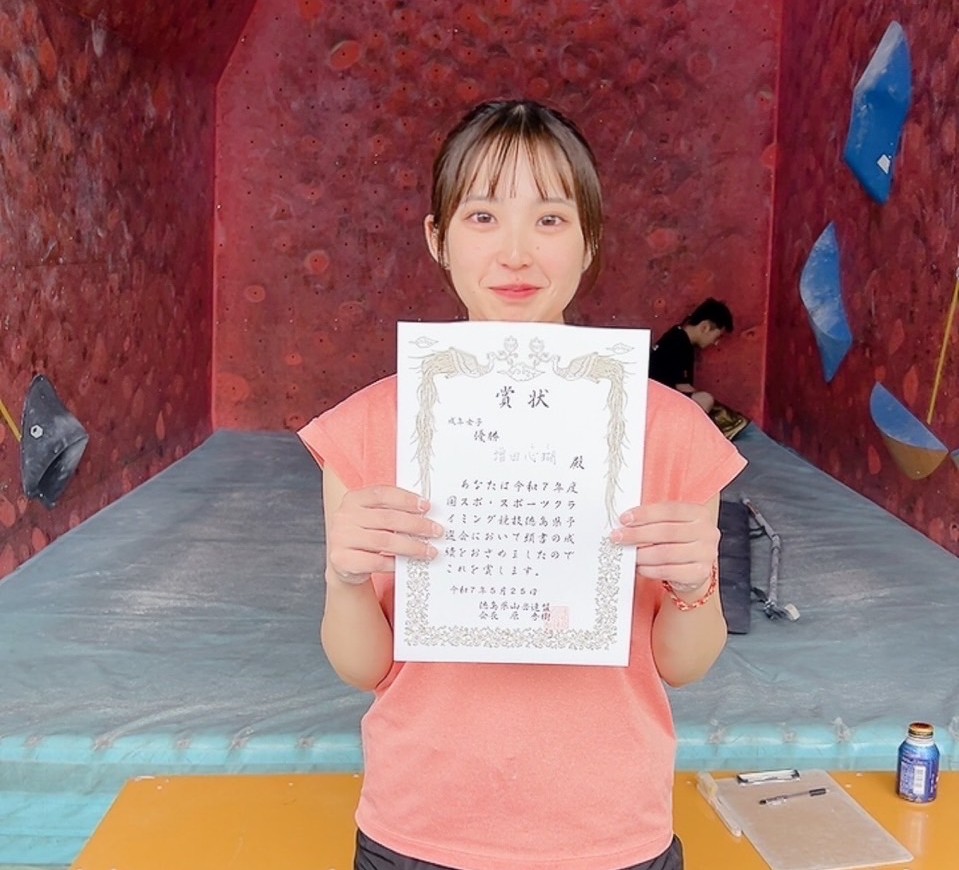 賞状
成年女子
優勝
増田心瑚 殿
あなたは令和7年度
国スポ・スポーツクラ
イミング競技徳島県予
選会において頭書の成
績をおさめましたので
これを賞します。
令和7年5月25日
徳島県山岳連盟
会長 原 秀樹